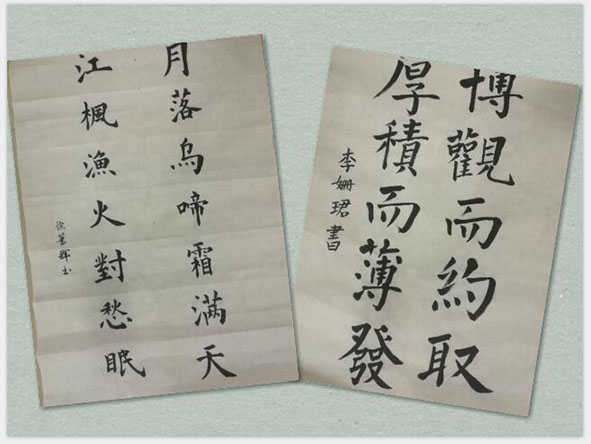 月落烏啼霜滿天
江楓漁火對愁眠
博觀而約取
厚積而薄發
李姍珺書